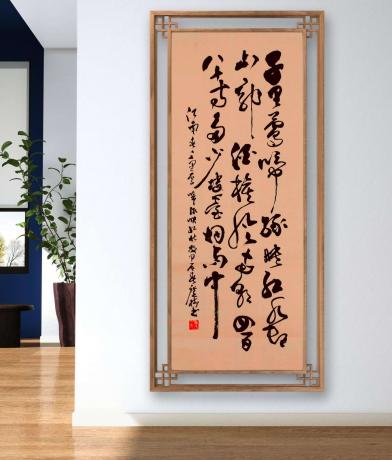 千里鶯啼緑映红水邨
山郭酒旗風南朝四百
八十寺多少楼臺烟雨中
江南春